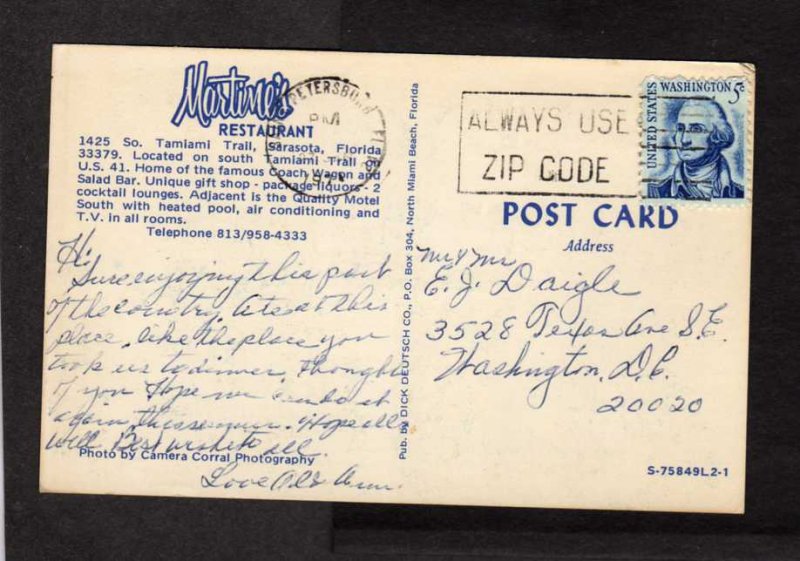 Martine's
RESTAURANT
1425 So. Tamiami Trail, Sarasota, Florida
33379. Located on south Tamiami Trail on
U.S. 41. Home of the famous Coach Wagon and
Salad Bar. Unique gift shop - package liquors - 2
cocktail lounges. Adjacent is the Quality Motel
South with heated pool, air conditioning and
T.V. in all rooms.
Telephone 813/958-4333
Hi,
Sure enjoying this part
of the country. Ate at this
place, like the place you
took us to dinner. Thought
of you Hope we can do it
again this summer. Hope all
well Best wishes to all.
Photo by Camera Corral Photography
Love Ann.
Pub. by DICK DEUTSCH CO., P.O. Box 304, North Miami Beach, Florida
PETERSBURG
PM
ALWAYS USE
ZIP CODE
UNITED STATES
WASHINGTON 5c
POST CARD
Address
Mr & Mrs
E. J. Daigle
3528 Texas Ave S.E.
Washington, D.C.
20020
S-75849L2-1